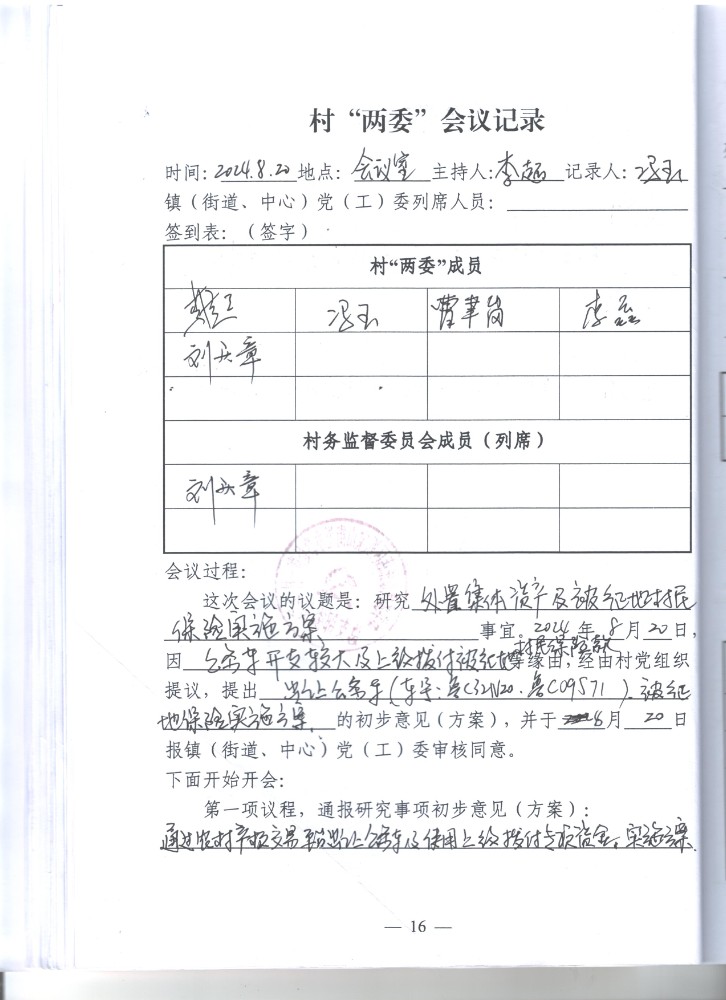 村“两委”会议记录
时间：2024.8.20 地点：会议室 主持人：李超 记录人：冯玉
镇（街道、中心）党（工）委列席人员：
签到表：（签字）
村“两委”成员
冯玉 曹聿岗 李磊
刘庆章
村务监督委员会成员（列席）
刘庆章
会议过程：
这次会议的议题是：研究 处置集体资产及被征地村民
保险实施方案 事宜。2024年8月20日，
村民保险款
因 公务车开支较大及上级拨付被征地等缘由，经由村党组织
提议，提出 出让公务车（车号：鲁C32N20、鲁C09S71）、被征
地保险实施方案 的初步意见（方案），并于8月20日
报镇（街道、中心）党（工）委审核同意。
下面开始开会：
第一项议程，通报研究事项初步意见（方案）：
通过农村产权交易 出让公务车及使用上级拨付专项资金，实施方案
— 16 —